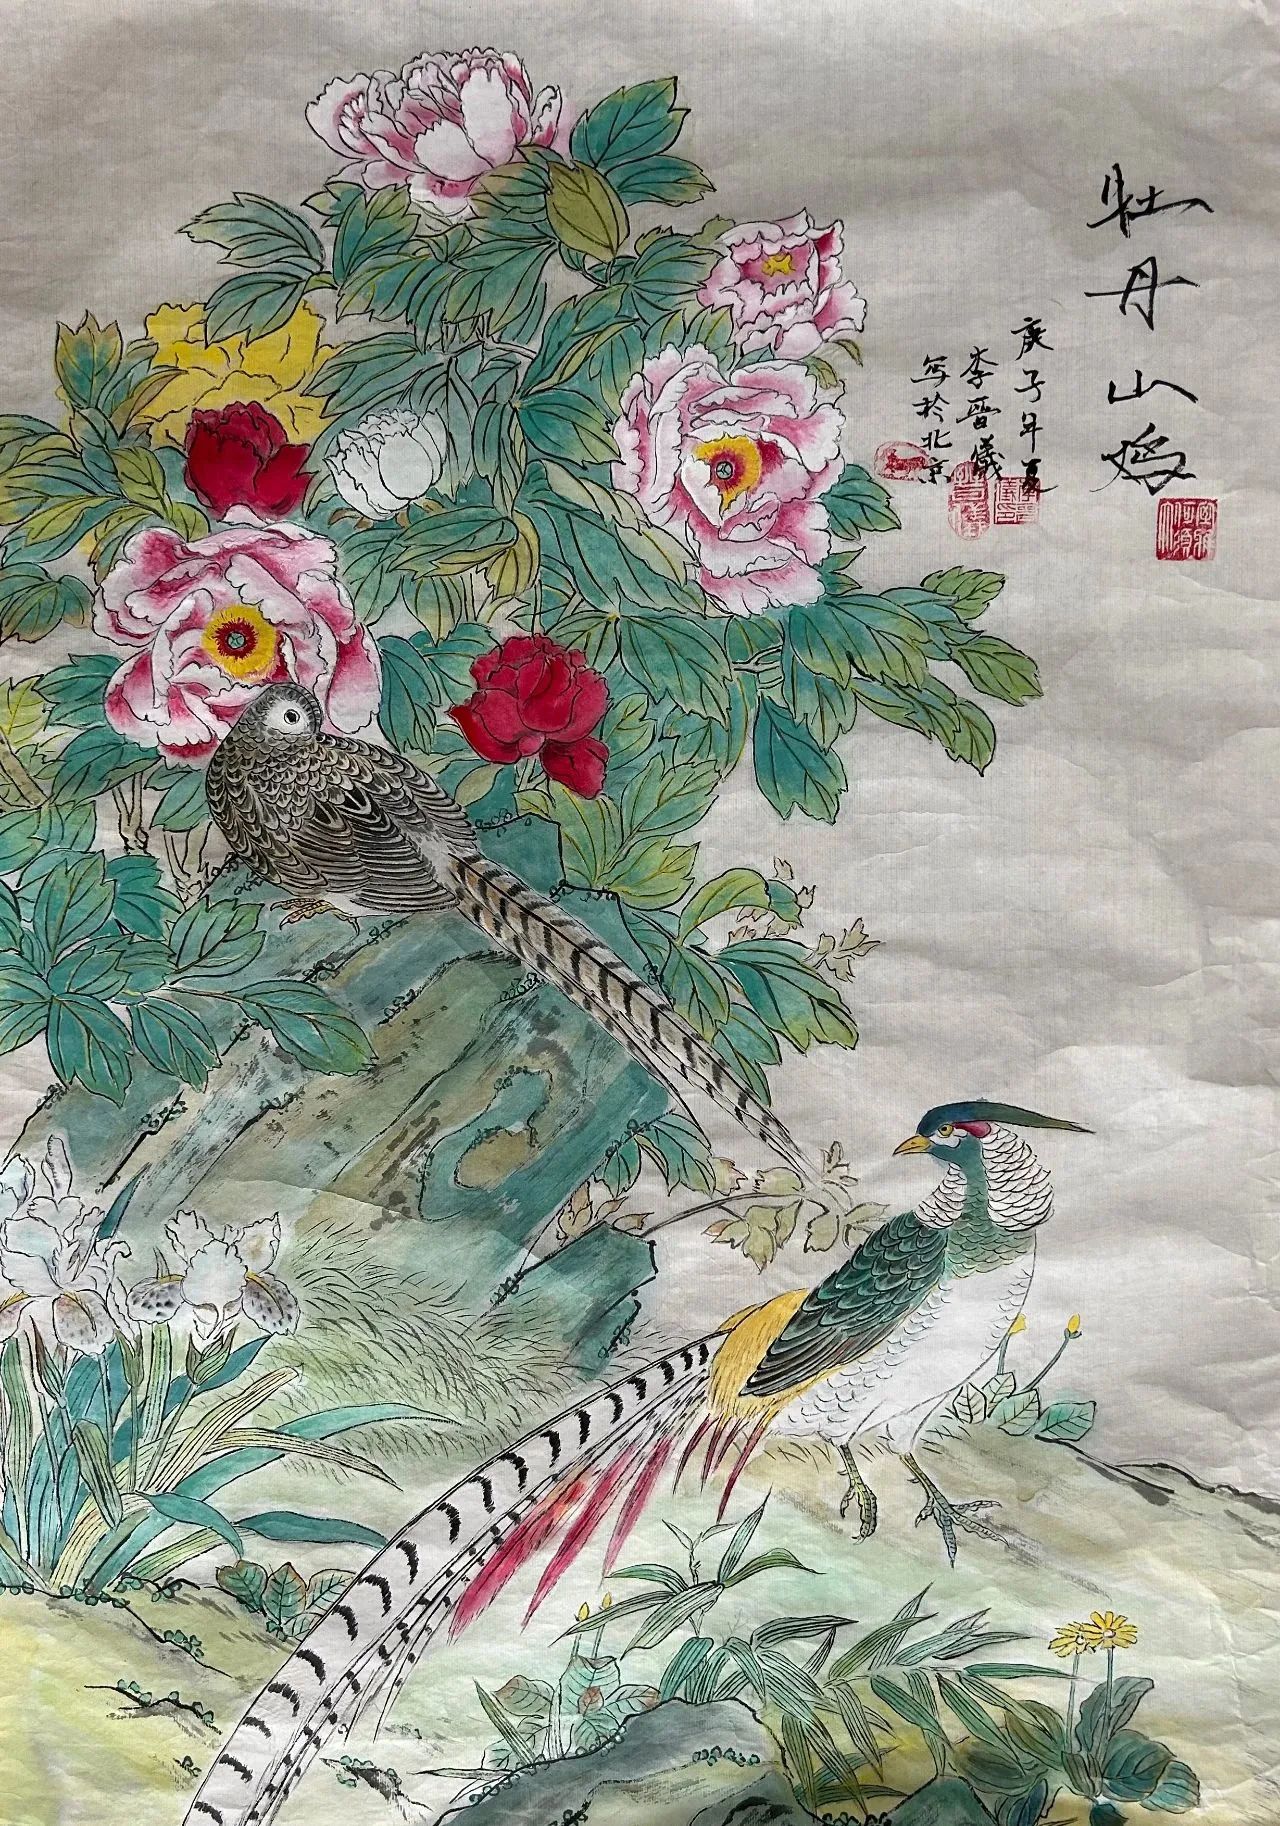 牡丹山鸡
庚子年夏
李晉儀
写於北京